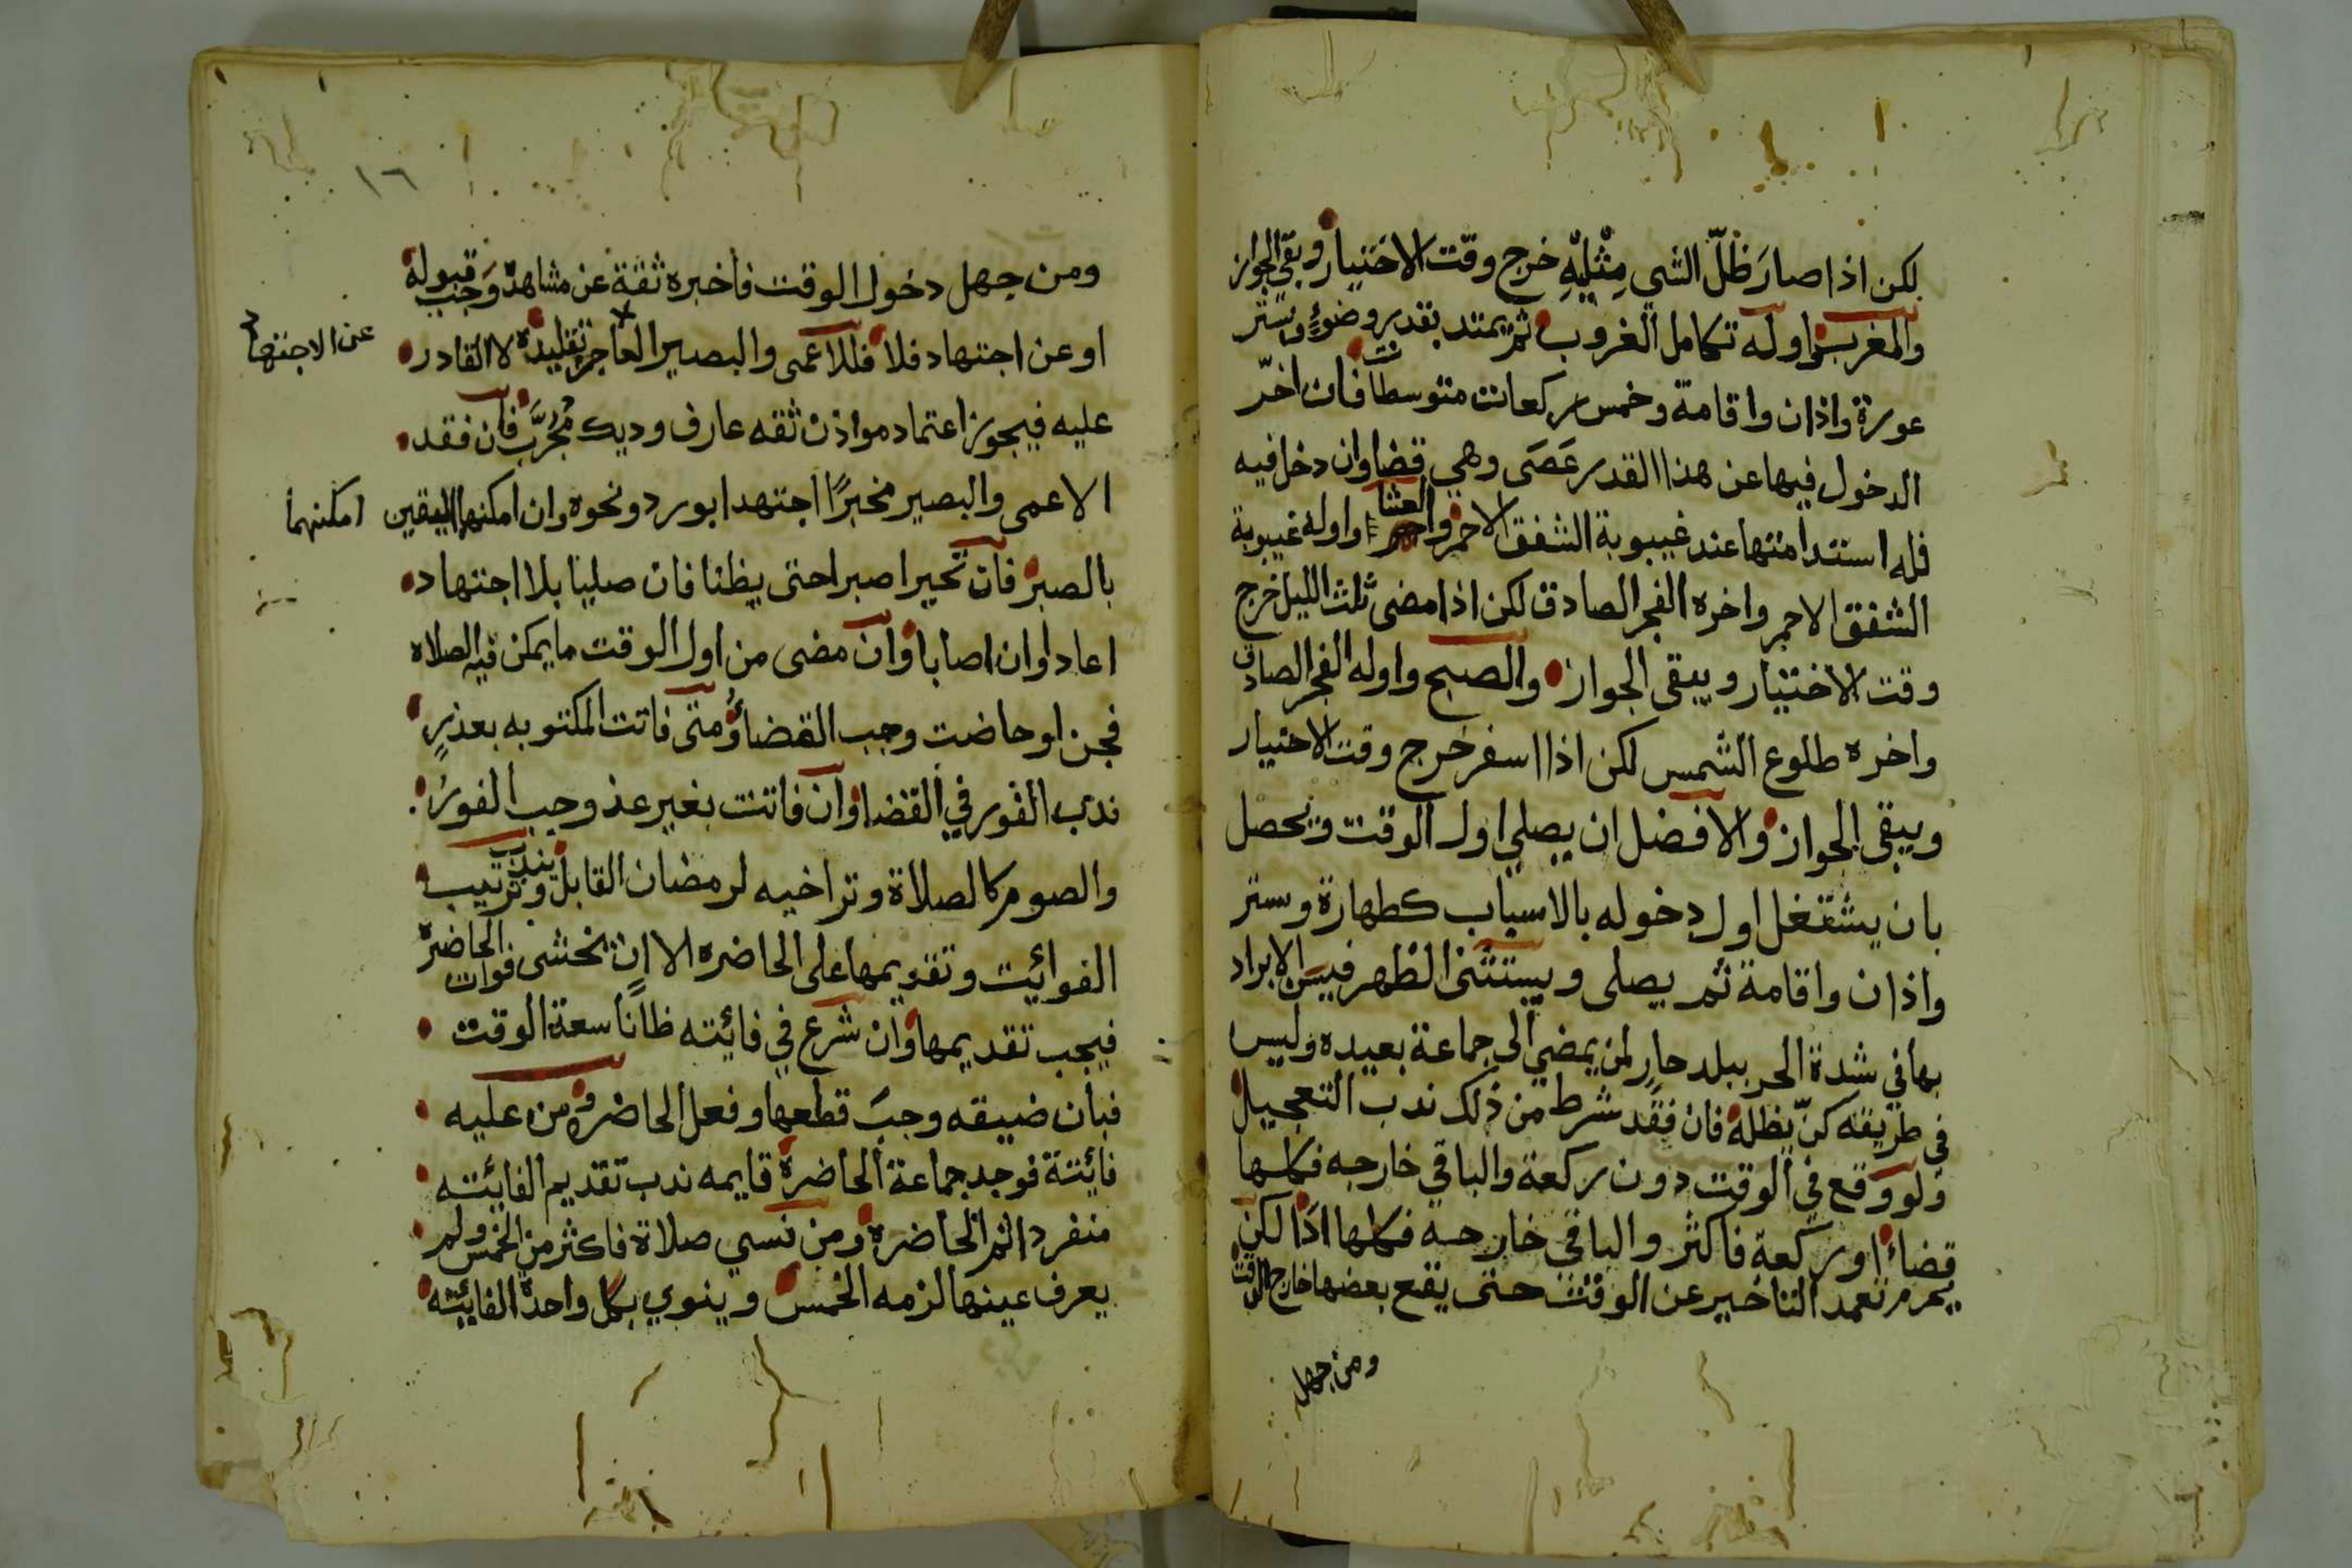 لكن اذا صارَ ظلّ الشي مِثْليْهِ خرج وقت الاختيار وبقي الجواز
والمغرب واوله تكامل الغروب ثم يمتد بقدر وضوءٍ وستر
عورة واذان واقامة وخمس ركعات متوسطات فان اخّر
الدخول فيها عن هذا القدر عَصَى وهي قضا وان دخل فيه
فله استدامتها عند غيبوبة الشفق الاحمر والعشا واوله غيبوبة
الشفق الاحمر واخره الفجر الصادق لكن اذا مضى ثلث الليل خرج
وقت الاختيار ويبقى الجواز والصبح واوله الفجر الصادق
واخره طلوع الشمس لكن اذا اسفر خرج وقت الاختيار
ويبقى الجواز والافضل ان يصلي اول الوقت ويحصل
بان يشتغل اول دخوله بالاسباب كطهارة وستر
واذان واقامة ثم يصلى ويستثنى الظهر فيسن الابراد
بها في شدة الحر ببلد حارٍ لمن يمضي الى جماعة بعيده وليس
في طريقه كنّ يظله فان فقد شرط من ذلك ندب التعجيل
ولو وقع في الوقت دون ركعة والباقي خارجه فكلها
قضاءً او ركعة فاكثر والباقي خارجه فكلها اداً لكن
يحرم تعمد التاخير عن الوقت حتى يقع بعضها خارج الوقت
ومن جهل
١٦
ومن جهل دخول الوقت فاخبره ثقة عن مشاهدة وَجب قبوله
او عن اجتهاد فلا فللاعمى والبصير العاجز تقليده لا القادر
عن الاجتهاد
عليه فيجوز اعتماد مواذن ثقه عارف وديك مُجرَّب فان فقد
الاعمى والبصير مخبرًا اجتهدا بورد ونحوه وان امكنهما اليقين
امكنهما
بالصبر فان تحيرا صبرا حتى يظنا فان صليا بلا اجتهاد
اعادا وان اصابا وان مضى من اول الوقت ما يمكن فيه الصلاه
فجن او حاضت وجب القضاءُ ومتى فاتت المكتوبه بعذرٍ
ندب الفور في القضا وان فاتت بغير عذ وجب الفورُ
والصوم كالصلاة وتراخيه لرمضان القابل ويندب ترتيب
الفوائيت وتقديمها على الحاضره الا ان يخشى فوات الحاضرة
فيجب تقديمها وان شرع في فائيته ظانًا سعة الوقت
فبان ضيقه وجبَ قطعها وفعل الحاضره ومن عليه
فائيتة فوجد جماعة الحاضرة قايمه ندب تقديم الفايئته
منفردا ثم الحاضرة ومن نسي صلاة فاكثر من الخمس ولم
يعرف عينها لزمه الخمس وينوي بكل واحدة الفايئته